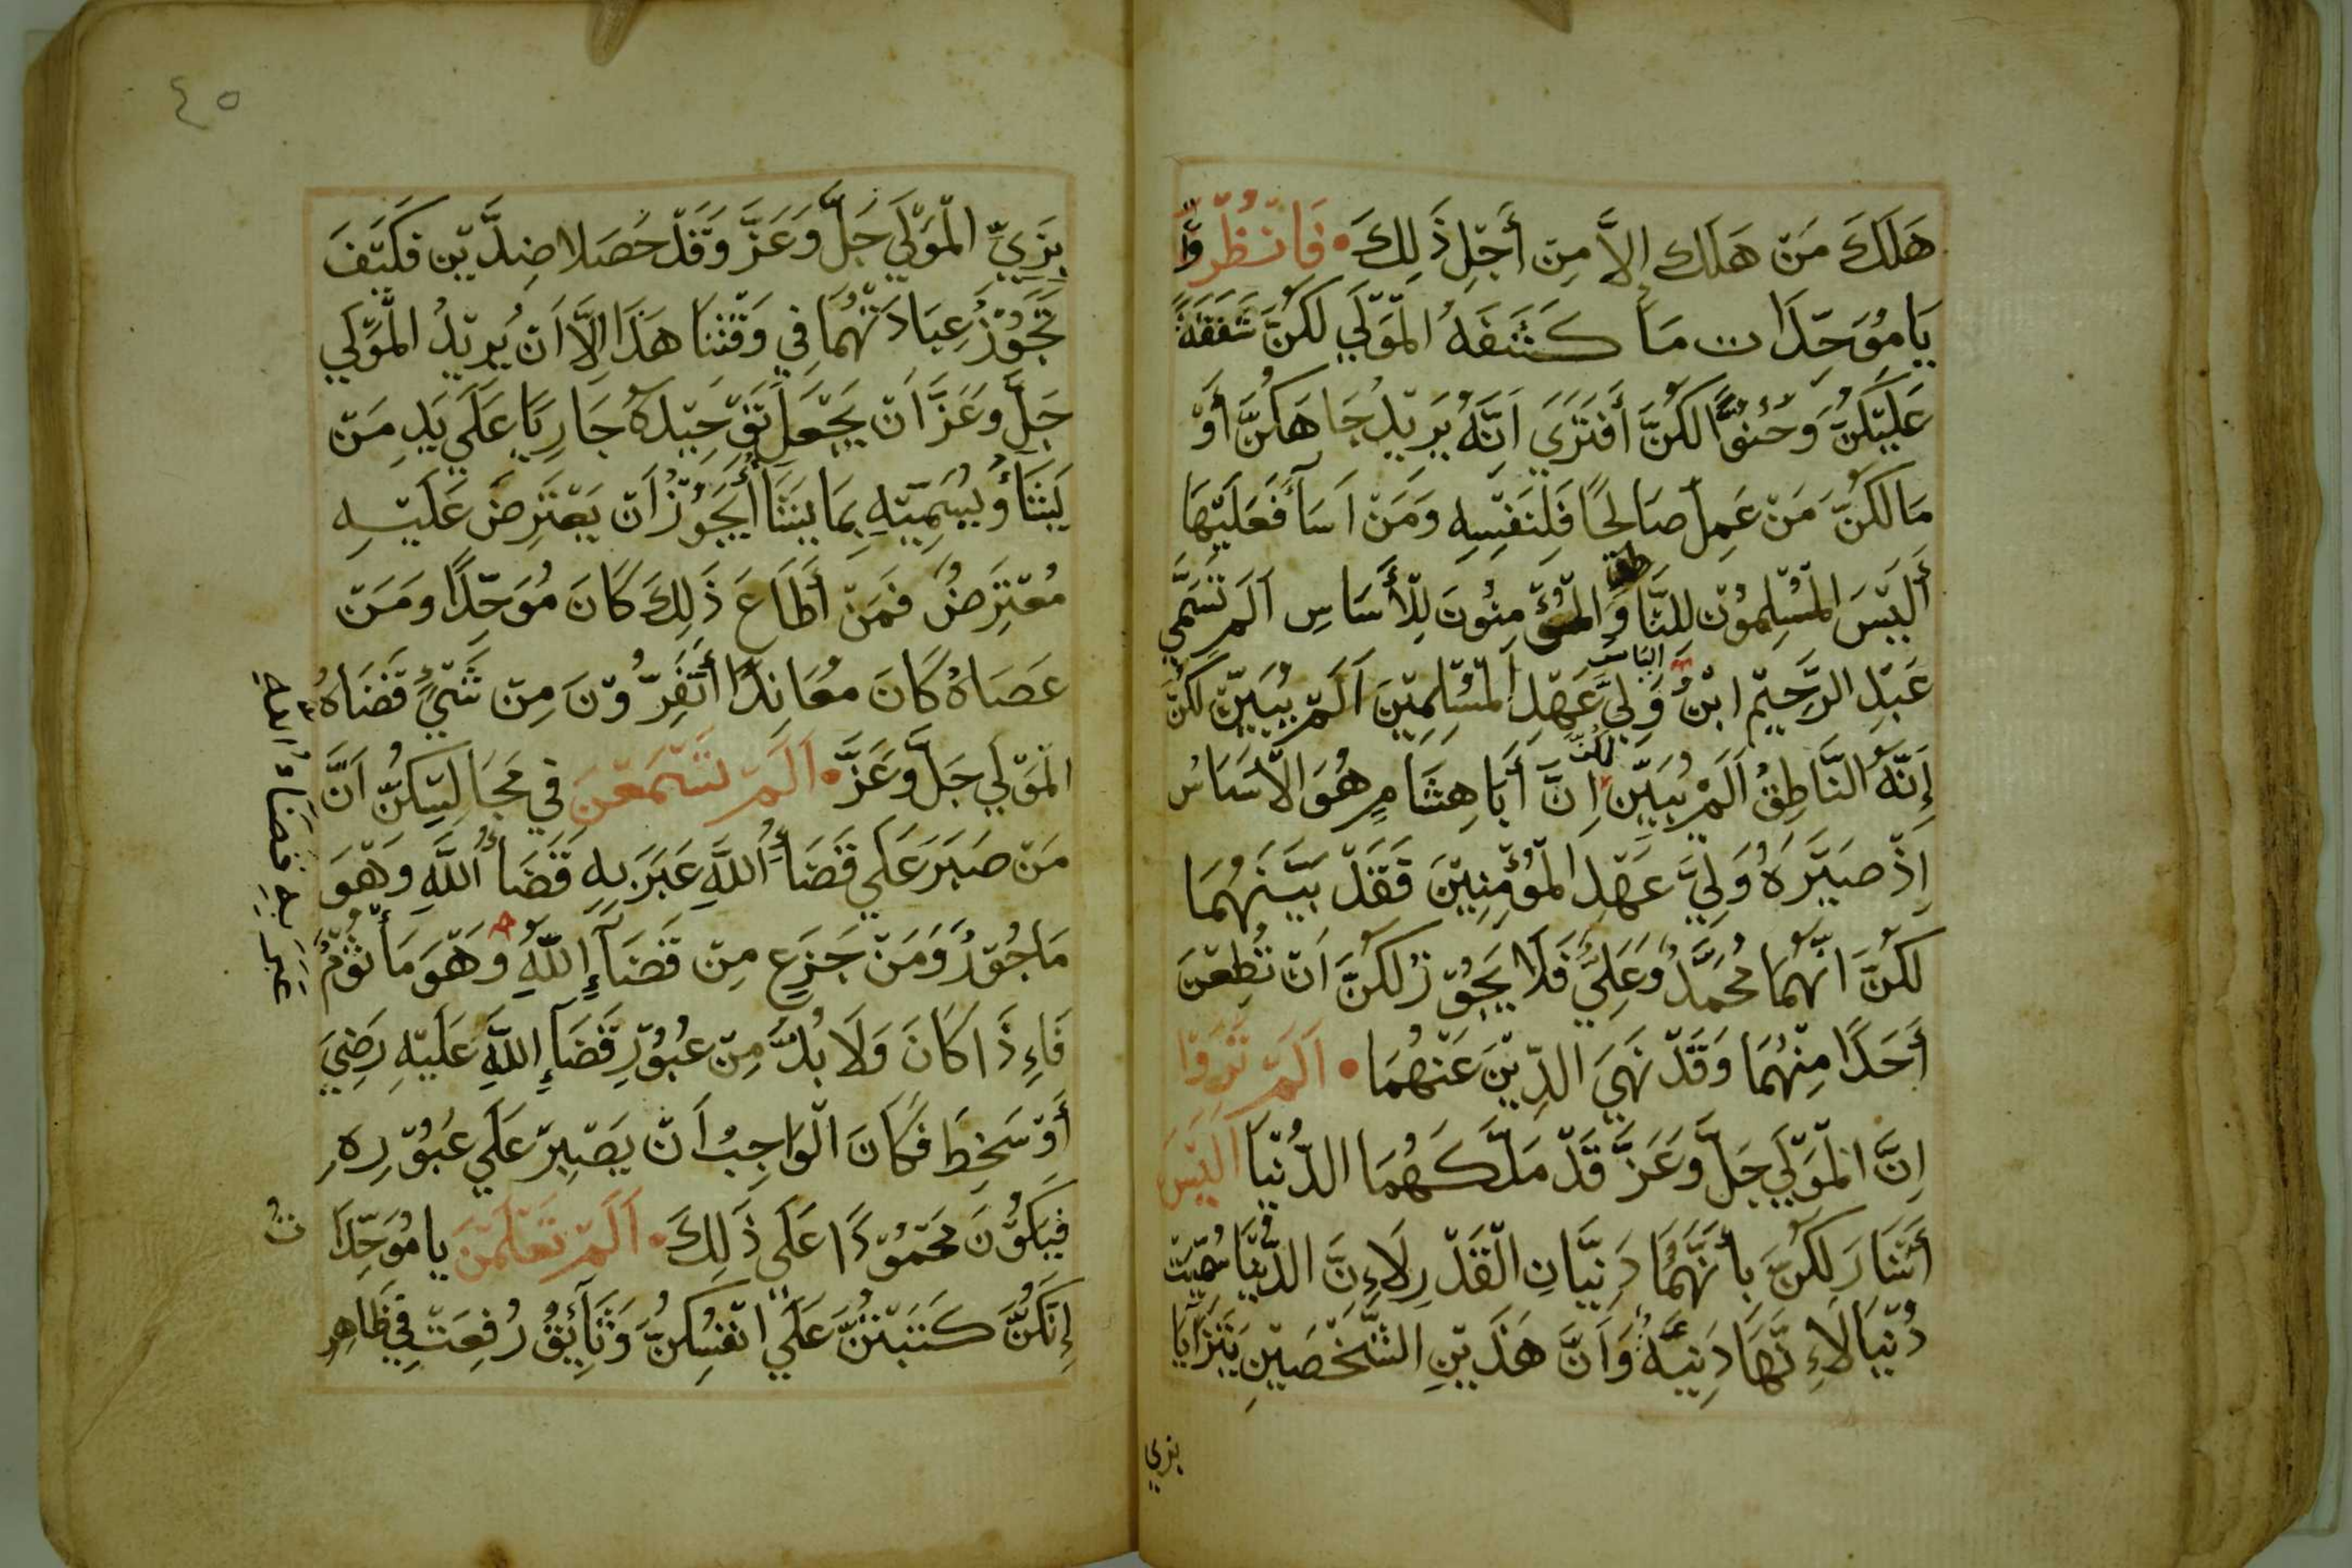 هَلَكَ مَنْ هَلَك إلاَّ مِن أَجْلِ ذَلِكَ • فَانْظُرْوا
يَا مُوَحِّدَات مَا كَشَفَهُ الْمَوْلَي لَكُنَّ شَفَقَةً
عَلَيْكُنَّ وَحُنُوًّا لَكُنَّ أَفَتَرَي اَنَّهُ يُرِيْدُ جَاهَكُنَّ أَوْ
مَالَكُنَّ مَنْ عَمِلَ صَالِحًا فَلِنَفْسِهِ وَمَنْ اَسَأَ فَعَلَيْهَا
أَلَيْسَ الْمُسْلِمُوْن لِلنَّاطق وَالْمُؤْمِنُونَ لِلْأَسَاسِ اَلَم تَسَمَّي
عَبْدِ الرَّحِيْم ابْنُ الياس وَلِيَّ عَهْدِ الْمُسْلِمِيْنَ اَلَمْ يُبَيِّنْ لَكُنَّ
إِنَّهُ النَّاطِقُ اَلَمْ يُبَيِّن لكنّ اِنَّ أَبَا هِشَامٍ هُوَ الأَسَاسُ
اِذْ صَيَّرَهُ وَلِيَّ عَهْدِ الْمُؤْمِنِيْنَ فَقَدْ بَيَّنَهُمَا
لَكُنَّ انَّهُمَا مُحَمَّدُ وَعَلِيُّ فَلاَ يَجُوْزُ لَكُنَّ اَنْ تُطِعْنَ
أَحَدًا مِنْهُمَا وَقَدْ نَهَي الدِّيْنَ عَنْهُمَا • اَلَمْ تَرَوْا
اِنَّ الْمَوْلَي جَلَّ وَعَزَّ قَدْ مَلَّكَهُمَا الدُّنْيَا اَلَيْسَ
أَشَارَ لَكُنَّ بِأَنَّهُمَا دَنِيَّانِ الْقَدْرِ لَاءِنَّ الدُّنْيَا سُمِّيَت
دُنْيَا لَاءِنَّهَا دَنِيَّةٌ وَاَنَّ هَذَيْنِ الشَّخْصَيْنِ يَتَزَايَا
بزي
٤٥
بِزِيِّ الْمَوْلَي جَلَّ وَعَزَّ وَقَدْ حَصَلا ضِدَّيْن فَكَيْفَ
تَجُوْزُ عِبَادَتُهُمَا فِي وَقْتِنَا هَذَا اِلَّا اَنْ يُرِيْدُ الْمَوْلَي
جَلَّ وَعَزَّ اَنْ يَجْعَلَ تَوْحِيْدَهُ جَارِيًا عَلَي يَدِ مَنْ
يَشَأُ وَيُسَمِّيْهِ بِمَا يَشَأَ أَيَجُوْزُ اَنْ يَعْتَرِضَ عَلَيْهِ
مُعْتَرِضُ فَمَنْ أَطَاعَ ذَلِكَ كَانَ مُوَحِّدًا وَمَنْ
عَصَاهُ كَانَ مُعَانِدًا أَتَفِرُّوْنَ مِنْ شَيْءٍ قَضَاهُ
الْمَوْلَي جَلَّ وَعَزَّ • اَلَمْ تَسْمَعْنَ فِي مَجَالِسِكُنَّ اَنَّ
مَنْ صَبَرَ عَلَي قَضَاُ اللَّهِ عَبَرَ بِهِ قَضَاُ اللَّهِ وَهْوَ
مَاجُوْرُ وَمَنْ جَزَعِ مِنْ قَضَآءِ اللَّهِ وَهْوَ مَأثُوْمُ
عبرَ بهِ قضاءُ اللهِ
فَاءِذَا كَانَ وَلَا بُدَّ مِنْ عُبُوْرِ قَضَآءِ اللَّهِ عَلَيْهِ رَضِيَ
أَوْ سَخِطَ فَكَانَ الْوَاجِبُ اَنْ يَصْبِرْ عَلَي عُبُوْرِهِ
فَيَكُوْنَ مَحْمُوْدًا عَلَي ذَلِكَ • اَلَمْ تَعْلَمْنَ يا مُوَحِّدَاتُ
إِنَّكُنَّ كَتَبْتُنَّ عَلَي انْفُسِكُنَّ وَثَآئِقُ رُفِعَتْ فِي ظَاهِرِ